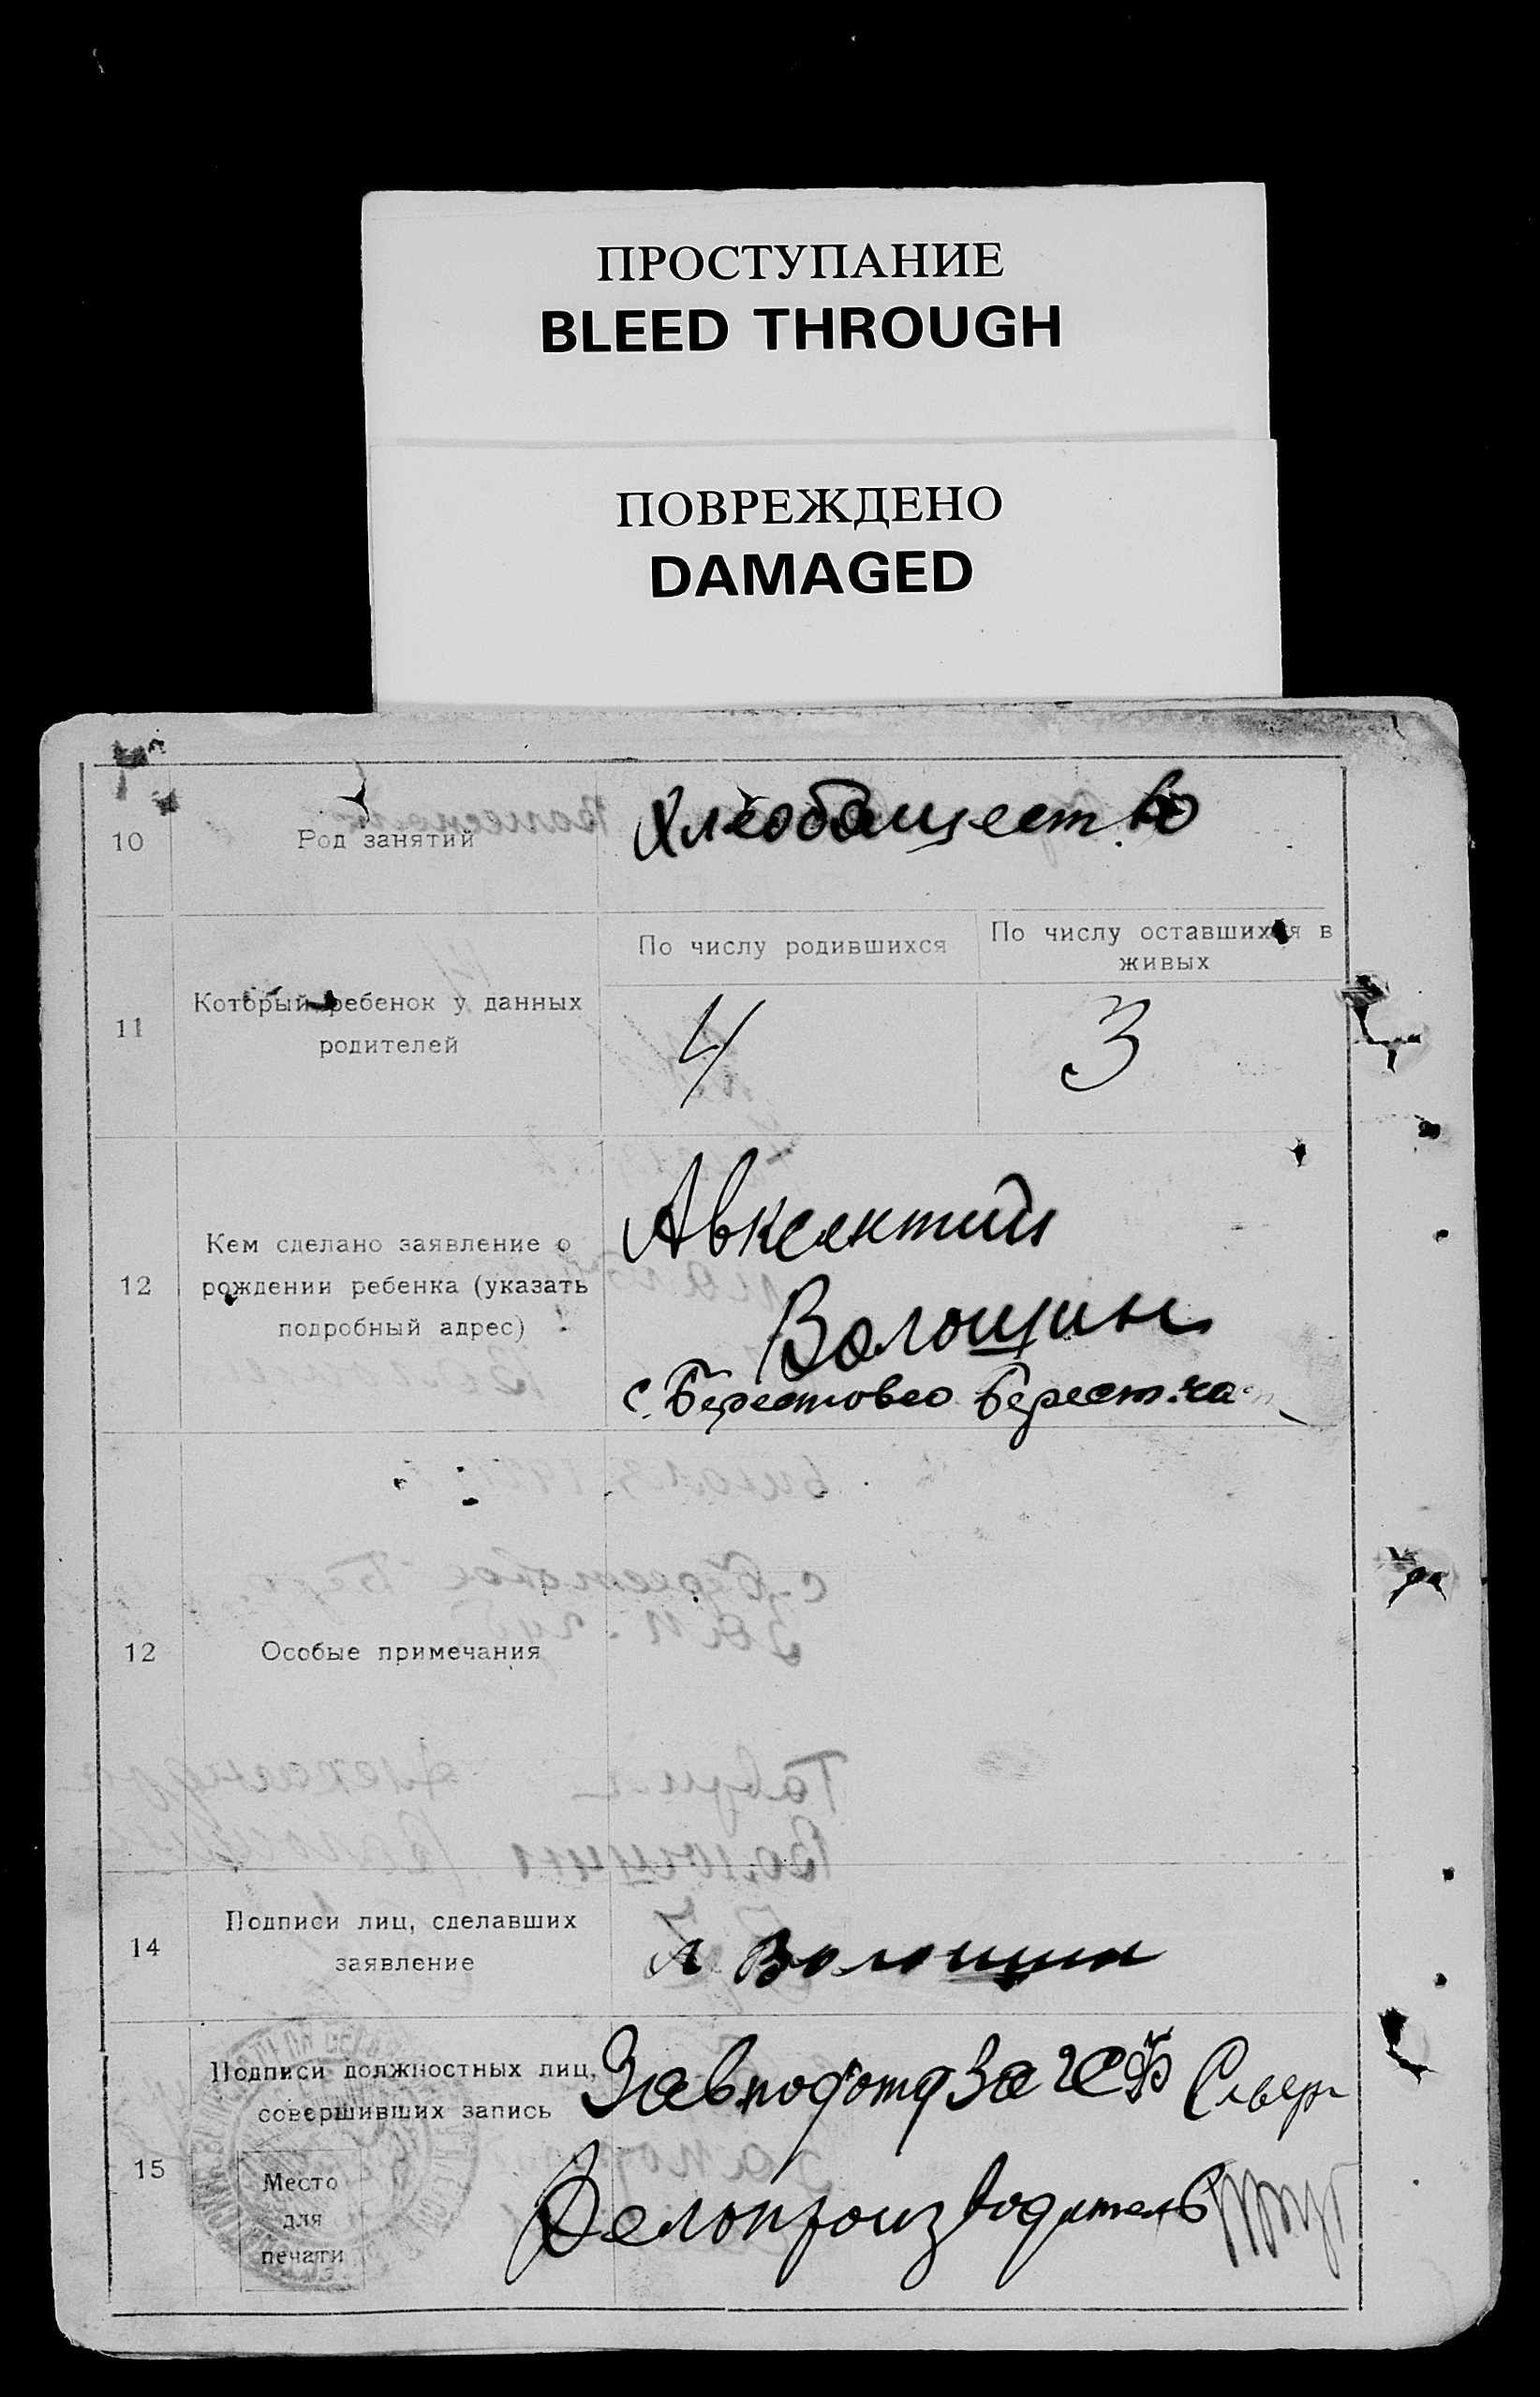 ПРОСТУПАНИЕ
BLEED THROUGH
ПОВРЕЖДЕНО
DAMAGED
10 Род занятий Хлебопашество
11 Который ребенок у данных
родителей
По числу родившихся
По числу оставшихся в
живых
4 3
12 Кем сделано заявление о
рождении ребенка (указать
подробный адрес)
Авксентий
Волощин
с. Берестовео Берест.
12 Особые примечания
14 Подписи лиц, сделавших
заявление
А Волощин
15 Подписи должностных лиц,
совершивших запись
Завподотд
Делопроизводитель
Место
для
печати